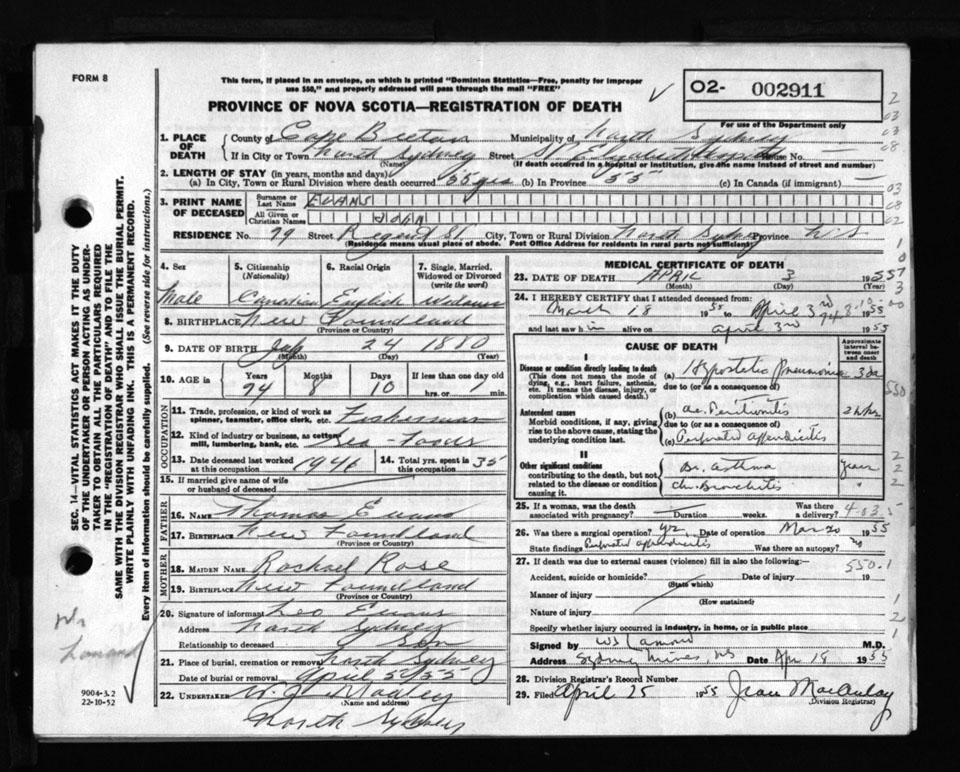 FORM 8
This form, if placed in an envelope, on which is printed "Dominion Statistics—Free, penalty for improper
use $50," and properly addressed will pass through the mail "FREE"
PROVINCE OF NOVA SCOTIA—REGISTRATION OF DEATH
O2- 002911
For use of the Department only
1. PLACE OF DEATH County of Cape Breton Municipality of North Sydney
If in City or Town North Sydney Street House No. —
(Name) (If death occurred in a hospital or institution, give the name instead of street and number)
2. LENGTH OF STAY (in years, months and days)
(a) In City, Town or Rural Division where death occurred 55 yrs (b) In Province 55 (c) In Canada (if immigrant) —
3. PRINT NAME OF DECEASED Surname or Last Name EVANS
All Given or Christian Names JOHN
RESIDENCE No. 79 Street Regent St. City, Town or Rural Division North Sydney Province N S
(Residence means usual place of abode. Post Office Address for residents in rural parts not sufficient)
4. Sex Male
5. Citizenship (Nationality) Canadian
6. Racial Origin English
7. Single, Married, Widowed or Divorced (write the word) Widower
8. BIRTHPLACE New Foundland
(Province or Country)
9. DATE OF BIRTH July 24 1880
(Month) (Day) (Year)
10. AGE in Years 74 Months 8 Days 10 If less than one day 1
hrs. or min.
OCCUPATION
11. Trade, profession, or kind of work as spinner, teamster, office clerk, etc. Fisherman
12. Kind of industry or business, as cotton mill, lumbering, bank, etc.
13. Date deceased last worked at this occupation 1946 14. Total yrs. spent in this occupation 35
15. If married give name of wife or husband of deceased
FATHER
16. NAME Thomas Evans
17. BIRTHPLACE New Foundland
(Province or Country)
MOTHER
18. MAIDEN NAME Rachael Rose
19. BIRTHPLACE New Foundland
(Province or Country)
20. Signature of informant Leo Evans
Address North Sydney
Relationship to deceased Son
21. Place of burial, cremation or removal North Sydney
Date of burial or removal April 5/55
22. UNDERTAKER W. J.
(Name and address)
North Sydney
MEDICAL CERTIFICATE OF DEATH
23. DATE OF DEATH APRIL 3 1955
(Month) (Day) (Year)
24. I HEREBY CERTIFY that I attended deceased from:
March 18 1955 to April 3rd 1955
and last saw him alive on april 3rd 1955
CAUSE OF DEATH
Approximate interval between onset and death
I
Disease or condition directly leading to death
(This does not mean the mode of dying, e.g., heart failure, asthenia, etc. It means the disease, injury, or complication which caused death.)
(a) Hypostatic Pneumonia 3 da
due to (or as a consequence of)
Antecedent causes
Morbid conditions, if any, giving rise to the above cause, stating the underlying condition last.
(b) ac. Peritonitis 2 wks
due to (or as a consequence of)
(c) Perforated appendicitis
II
Other significant conditions
contributing to the death, but not related to the disease or condition causing it.
Br. asthma years
Chr Bronchitis "
25. If a woman, was the death associated with pregnancy? — Duration weeks. Was there a delivery?
26. Was there a surgical operation? yes Date of operation Mar 20 1955
State findings Perforated appendicitis Was there an autopsy? no
27. If death was due to external causes (violence) fill in also the following:—
Accident, suicide or homicide? Date of injury 19
(State which)
Manner of injury
(How sustained)
Nature of injury
Specify whether injury occurred in industry, in home, or in public place
Signed by M.D.
Address Sydney Mines, NS Date Apr 18 1955
28. Division Registrar's Record Number
29. Filed April 25 1955 Jean MacAulay
(Division Registrar)
SEC. 14—VITAL STATISTICS ACT MAKES IT THE DUTY
OF THE UNDERTAKER OR PERSON ACTING AS UNDER-
TAKER TO OBTAIN ALL THE PARTICULARS REQUIRED
IN THE "REGISTRATION OF DEATH" AND TO FILE THE
SAME WITH THE DIVISION REGISTRAR WHO SHALL ISSUE THE BURIAL PERMIT.
WRITE PLAINLY WITH UNFADING INK. THIS IS A PERMANENT RECORD.
Every item of information should be carefully supplied. (See reverse side for instructions.)
9004-3.2
22-10-52